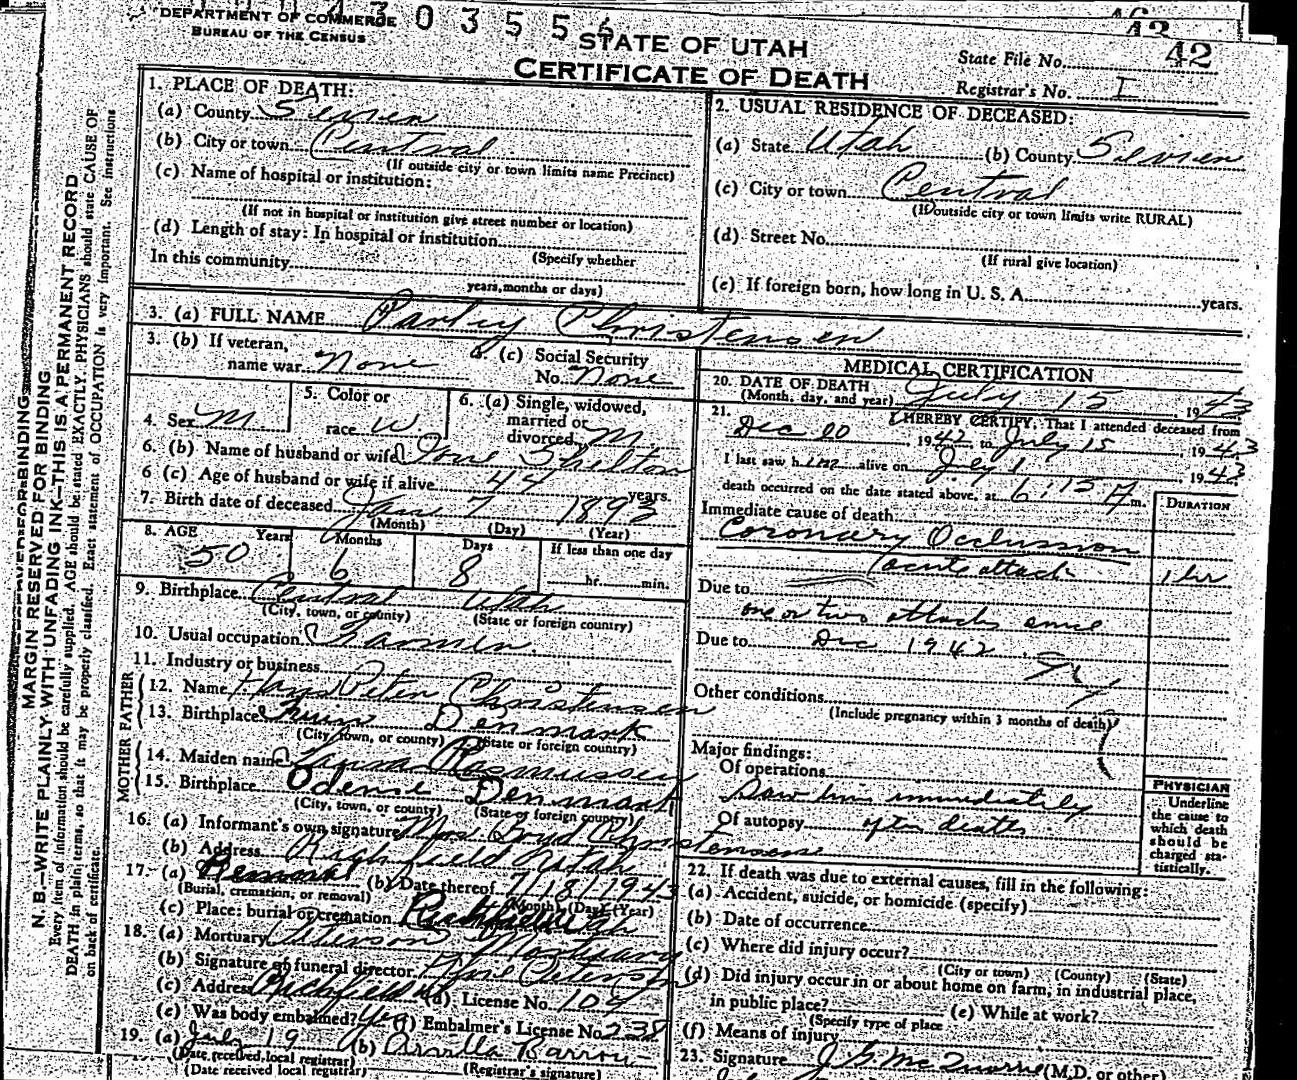 DEPARTMENT OF COMMERCE
BUREAU OF THE CENSUS
4 3 0 3 5 5
STATE OF UTAH
CERTIFICATE OF DEATH
State File No. 42
Registrar's No. I
MARGIN RESERVED FOR BINDING
N. B.—WRITE PLAINLY WITH UNFADING INK—THIS IS A PERMANENT RECORD
Every item of information should be carefully supplied. AGE should be stated EXACTLY. PHYSICIANS should state CAUSE OF
DEATH in plain terms, so that it may be properly classified. Exact statement of OCCUPATION is very important. See instructions
on back of certificate.
1. PLACE OF DEATH:
(a) County Sevier
(b) City or town Central
(If outside city or town limits name Precinct)
(c) Name of hospital or institution:
(If not in hospital or institution give street number or location)
(d) Length of stay: In hospital or institution
(Specify whether
In this community
years, months or days)
2. USUAL RESIDENCE OF DECEASED:
(a) State Utah (b) County Sevier
(c) City or town Central
(If outside city or town limits write RURAL)
(d) Street No.
(If rural give location)
(e) If foreign born, how long in U. S. A. years.
3. (a) FULL NAME Parley Christensen
3. (b) If veteran,
name war None
(c) Social Security
No. None
4. Sex M
5. Color or
race W
6. (a) Single, widowed,
married or
divorced M
6. (b) Name of husband or wife Ione Shelton
6 (c) Age of husband or wife if alive 44 years.
7. Birth date of deceased Jan 7 1893
(Month) (Day) (Year)
8. AGE Years Months Days If less than one day
50 6 8 hr. min.
9. Birthplace Central Utah
(City, town, or county) (State or foreign country)
10. Usual occupation Farmer
11. Industry or business
FATHER
12. Name Hans Peter Christensen
13. Birthplace Denmark
(City, town, or county) (State or foreign country)
MOTHER
14. Maiden name Laura Rasmussen
15. Birthplace Odense Denmark
(City, town, or county) (State or foreign country)
16. (a) Informant's own signature Mrs Boyd Christensen
(b) Address Richfield Utah
17. (a) Removal (b) Date thereof 7/18/1943
(Burial, cremation, or removal) (Month) (Day) (Year)
(c) Place: burial or cremation Richfield Utah
18. (a) Mortuary Peterson Mortuary
(b) Signature of funeral director Peterson
(c) Address Richfield (d) License No. 104
(e) Was body embalmed? Yes (f) Embalmer's License No. 238
19. (a) July 19 (b) Barrow
(Date received local registrar)
(Date received local registrar) (Registrar's signature)
MEDICAL CERTIFICATION
20. DATE OF DEATH July 15, 1943
(Month, day, and year)
21. I HEREBY CERTIFY, That I attended deceased from
Dec 20, 1942 to July 15, 1943
I last saw him alive on July 1, 1943
death occurred on the date stated above, at 6:15 A m.
DURATION
Immediate cause of death
Coronary Occlussion
(acute attack 1 hr
Due to
one or two attacks since
Due to Dec 1942
Other conditions
(Include pregnancy within 3 months of death)
Major findings:
Of operations
Saw him immediately
Of autopsy after death
PHYSICIAN
Underline
the cause to
which death
should be
charged sta-
tistically.
22. If death was due to external causes, fill in the following:
(a) Accident, suicide, or homicide (specify)
(b) Date of occurrence
(c) Where did injury occur?
(City or town) (County) (State)
(d) Did injury occur in or about home on farm, in industrial place,
in public place? (e) While at work?
(Specify type of place
(f) Means of injury
23. Signature J. G. McQuarrie (M.D. or other)